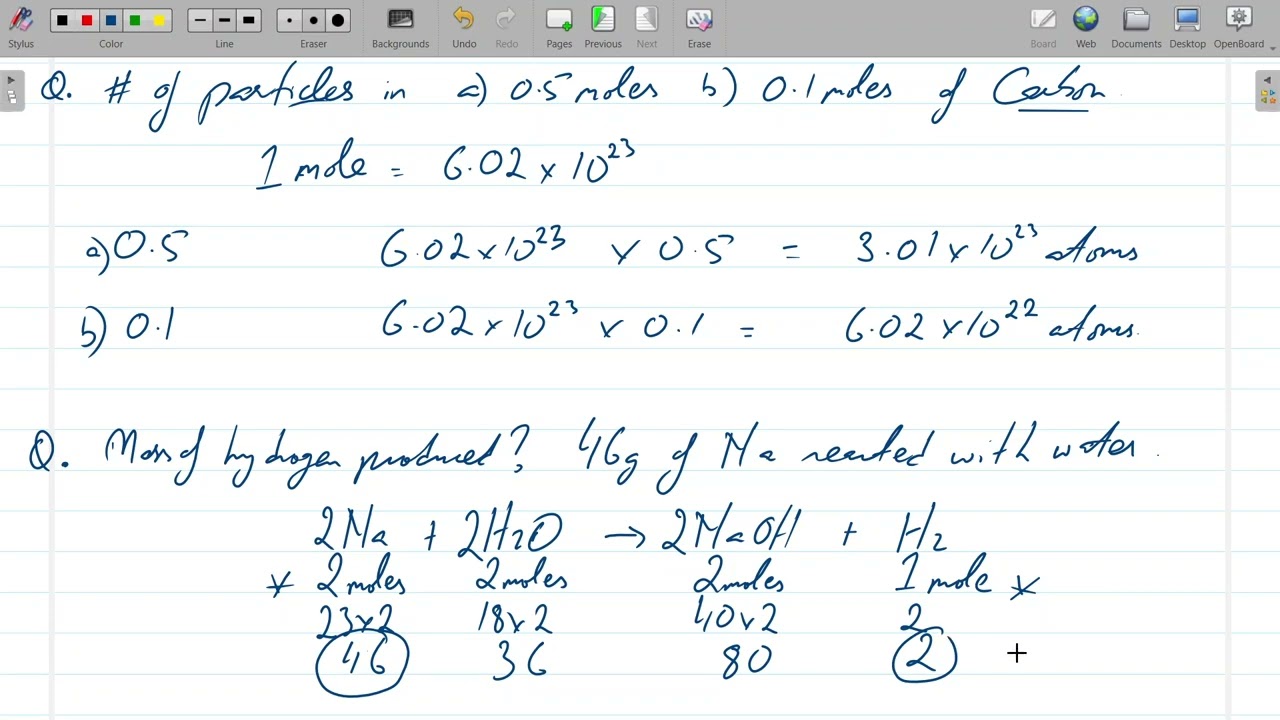 Stylus Color Line Eraser Backgrounds Undo Redo Pages Previous Next Erase Board Web Documents Desktop OpenBoard
Q. # of particles in a) 0.5 moles b) 0.1 moles of Carbon.
1 mole = 6.02 x 10²³
a) 0.5 6.02 x 10²³ x 0.5 = 3.01 x 10²³ atoms
b) 0.1 6.02 x 10²³ x 0.1 = 6.02 x 10²² atoms.
Q. Mass of hydrogen produced? 46g of Na reacted with water.
2Na + 2H₂O → 2NaOH + H₂
* 2 moles 2 moles 2 moles 1 mole *
23x2 18x2 40x2 2
46 36 80 2